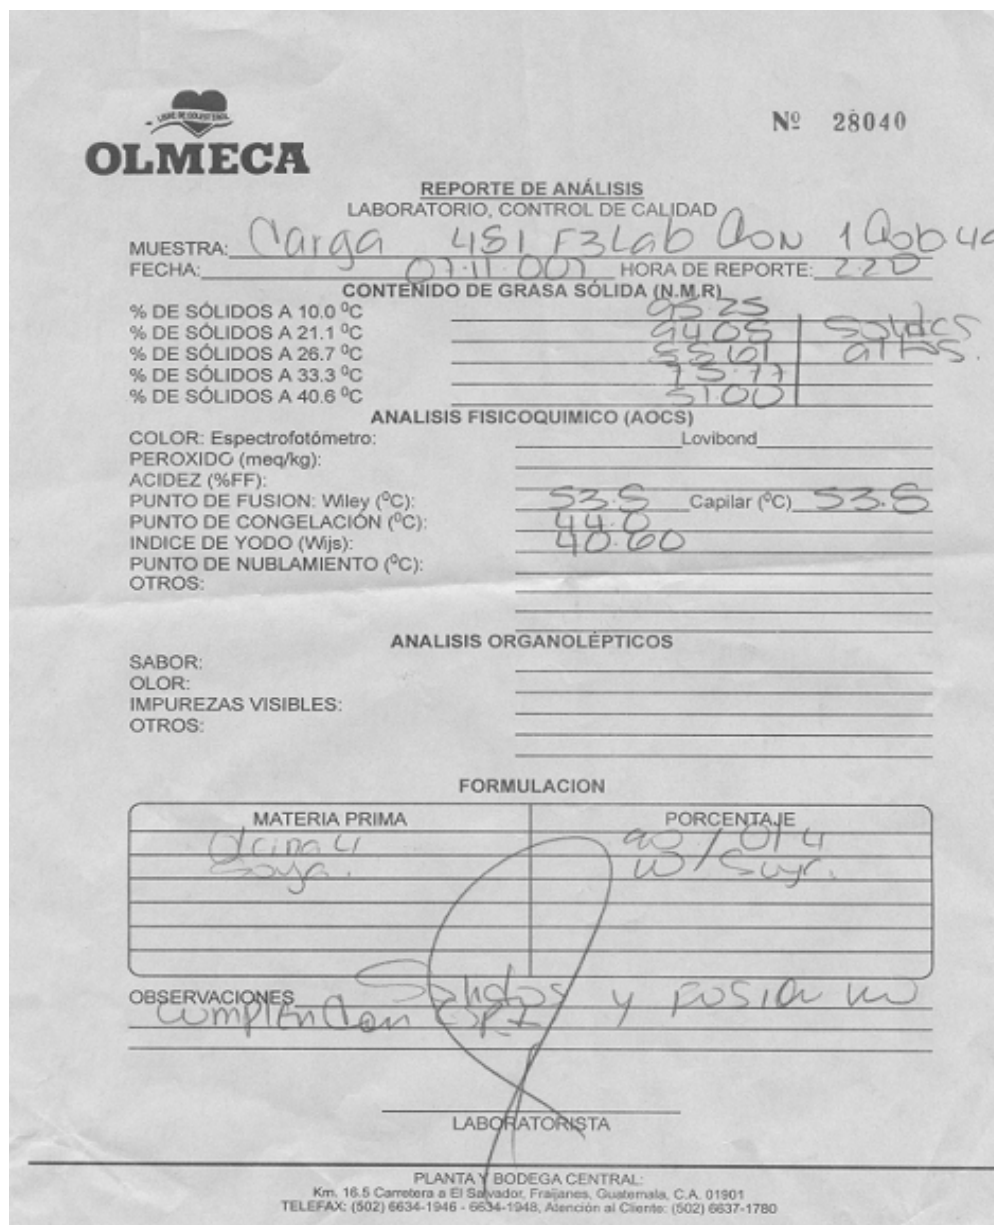 LIBRE DE COLESTEROL
OLMECA
Nº 28040
REPORTE DE ANÁLISIS
LABORATORIO, CONTROL DE CALIDAD
MUESTRA: Carga 451 F3Lab Con 1
FECHA: 07.11.007 HORA DE REPORTE: 2:20
CONTENIDO DE GRASA SÓLIDA (N.M.R)
% DE SÓLIDOS A 10.0 ⁰C 95.25
% DE SÓLIDOS A 21.1 ⁰C 94.05 Solidos
% DE SÓLIDOS A 26.7 ⁰C altos.
% DE SÓLIDOS A 33.3 ⁰C 73.77
% DE SÓLIDOS A 40.6 ⁰C 51.00
ANALISIS FISICOQUIMICO (AOCS)
COLOR: Espectrofotómetro: Lovibond
PEROXIDO (meq/kg):
ACIDEZ (%FF):
PUNTO DE FUSION: Wiley (⁰C): 53.5 Capilar (⁰C) 53.5
PUNTO DE CONGELACIÓN (⁰C): 44.0
INDICE DE YODO (Wijs): 40.60
PUNTO DE NUBLAMIENTO (⁰C):
OTROS:
ANALISIS ORGANOLÉPTICOS
SABOR:
OLOR:
IMPUREZAS VISIBLES:
OTROS:
FORMULACION
MATERIA PRIMA PORCENTAJE
90 / Ol 4
Soya.
OBSERVACIONES Solidos y fusion no
cumplen con
LABORATORISTA
PLANTA Y BODEGA CENTRAL:
Km. 16.5 Carretera a El Salvador, Fraijanes, Guatemala, C.A. 01901
TELEFAX: (502) 6634-1946 - 6634-1948, Atención al Cliente: (502) 6637-1780